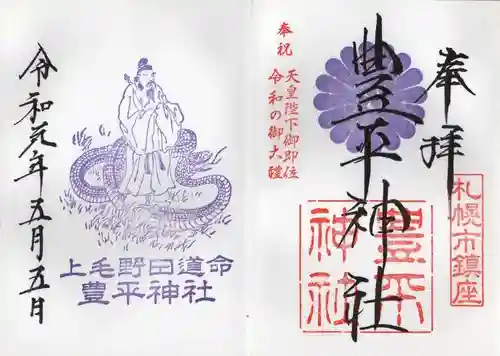 奉拝
豊平神社
札幌市鎮座
豊平
神社
奉祝
天皇陛下御即位
令和の御大禮
令和元年五月五日
上毛野田道命
豊平神社